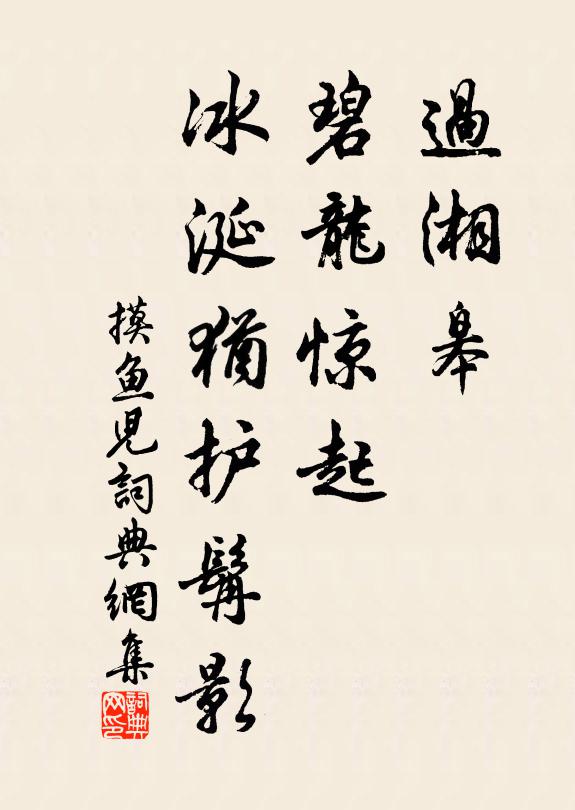 過湘皋
碧龍惊起
冰涎猶护髯影
摸鱼児詞典網集
詞典网印